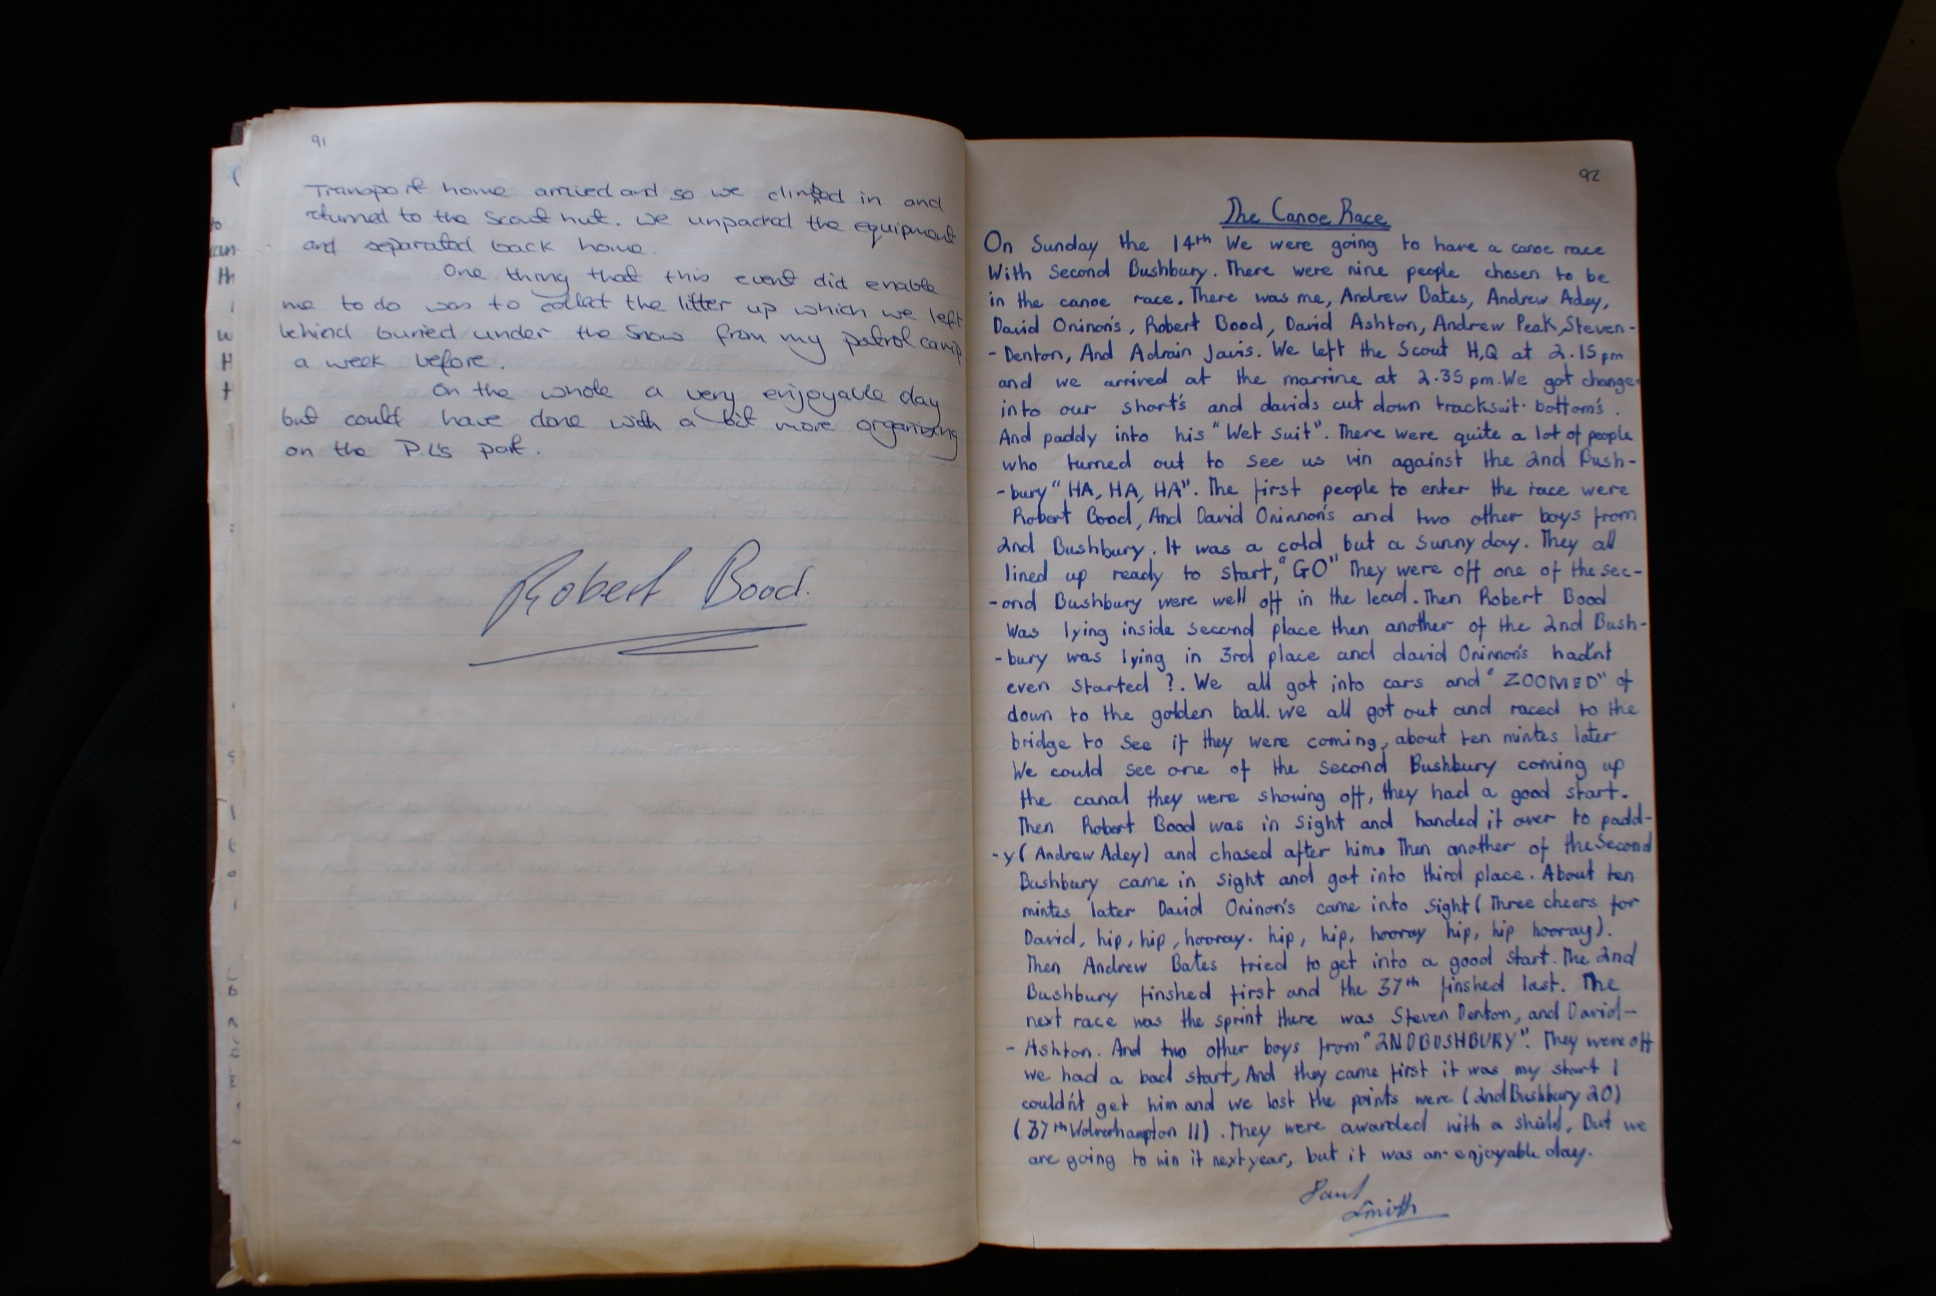 91
Transport home arrived and so we climbed in and
returned to the Scout hut. we unpacked the equipment
and separated back home.
One thing that this event did enable
me to do was to collect the litter up which we left
behind buried under the snow from my patrol camp
a week before.
On the whole a very enjoyable day
but could have done with a bit more organising
on the P.L's part.
Robert Bood.
92
The Canoe Race
On Sunday the 14th We were going to have a canoe race
With Second Bushbury. There were nine people chosen to be
in the canoe race. There was me, Andrew Bates, Andrew Adey,
David Oninon's, Robert Bood, David Ashton, Andrew Peak, Steven-
- Denton, And Adrain Javis. We left the Scout H,Q at 2.15pm
and we arrived at the marrine at 2.35 pm. We got change
into our short's and davids cut down tracksuit bottom's.
And paddy into his "Wet suit". There were quite a lot of people
who turned out to see us win against the 2nd Bush-
-bury "HA, HA, HA". The first people to enter the race were
Robert Bood, And David Oninnon's and two other boys from
2nd Bushbury. It was a cold but a sunny day. They all
lined up ready to start, "GO" They were off one of the sec-
-ond Bushbury were well off in the lead. Then Robert Bood
Was lying inside second place then another of the 2nd Bush-
-bury was lying in 3rd place and david Oninnon's hadn't
even started ?. We all got into cars and "ZOOMED" of
down to the golden ball. we all got out and raced to the
bridge to see if they were coming, about ten mintes later
We could see one of the second Bushbury coming up
the canal they were showing off, they had a good start.
Then Robert Bood was in sight and handed it over to padd-
-y (Andrew Adey) and chased after him. Then another of the Second
Bushbury came in sight and got into third place. About ten
mintes later David Oninon's came into sight (Three cheers for
David, hip, hip, hooray. hip, hip, hooray hip, hip hooray).
Then Andrew Bates tried to get into a good start. The 2nd
Bushbury finshed first and the 37th finshed last. The
next race was the sprint there was Steven Denton, and David-
- Ashton. And two other boys from "2ND BUSHBURY". They were off
we had a bad start, And they came first it was my start I
couldn't get him and we lost the points were (2nd Bushbury 20)
(37th Wolverhampton 11). They were awarded with a shield. But we
are going to win it next year, but it was an enjoyable day.
Paul
Smith